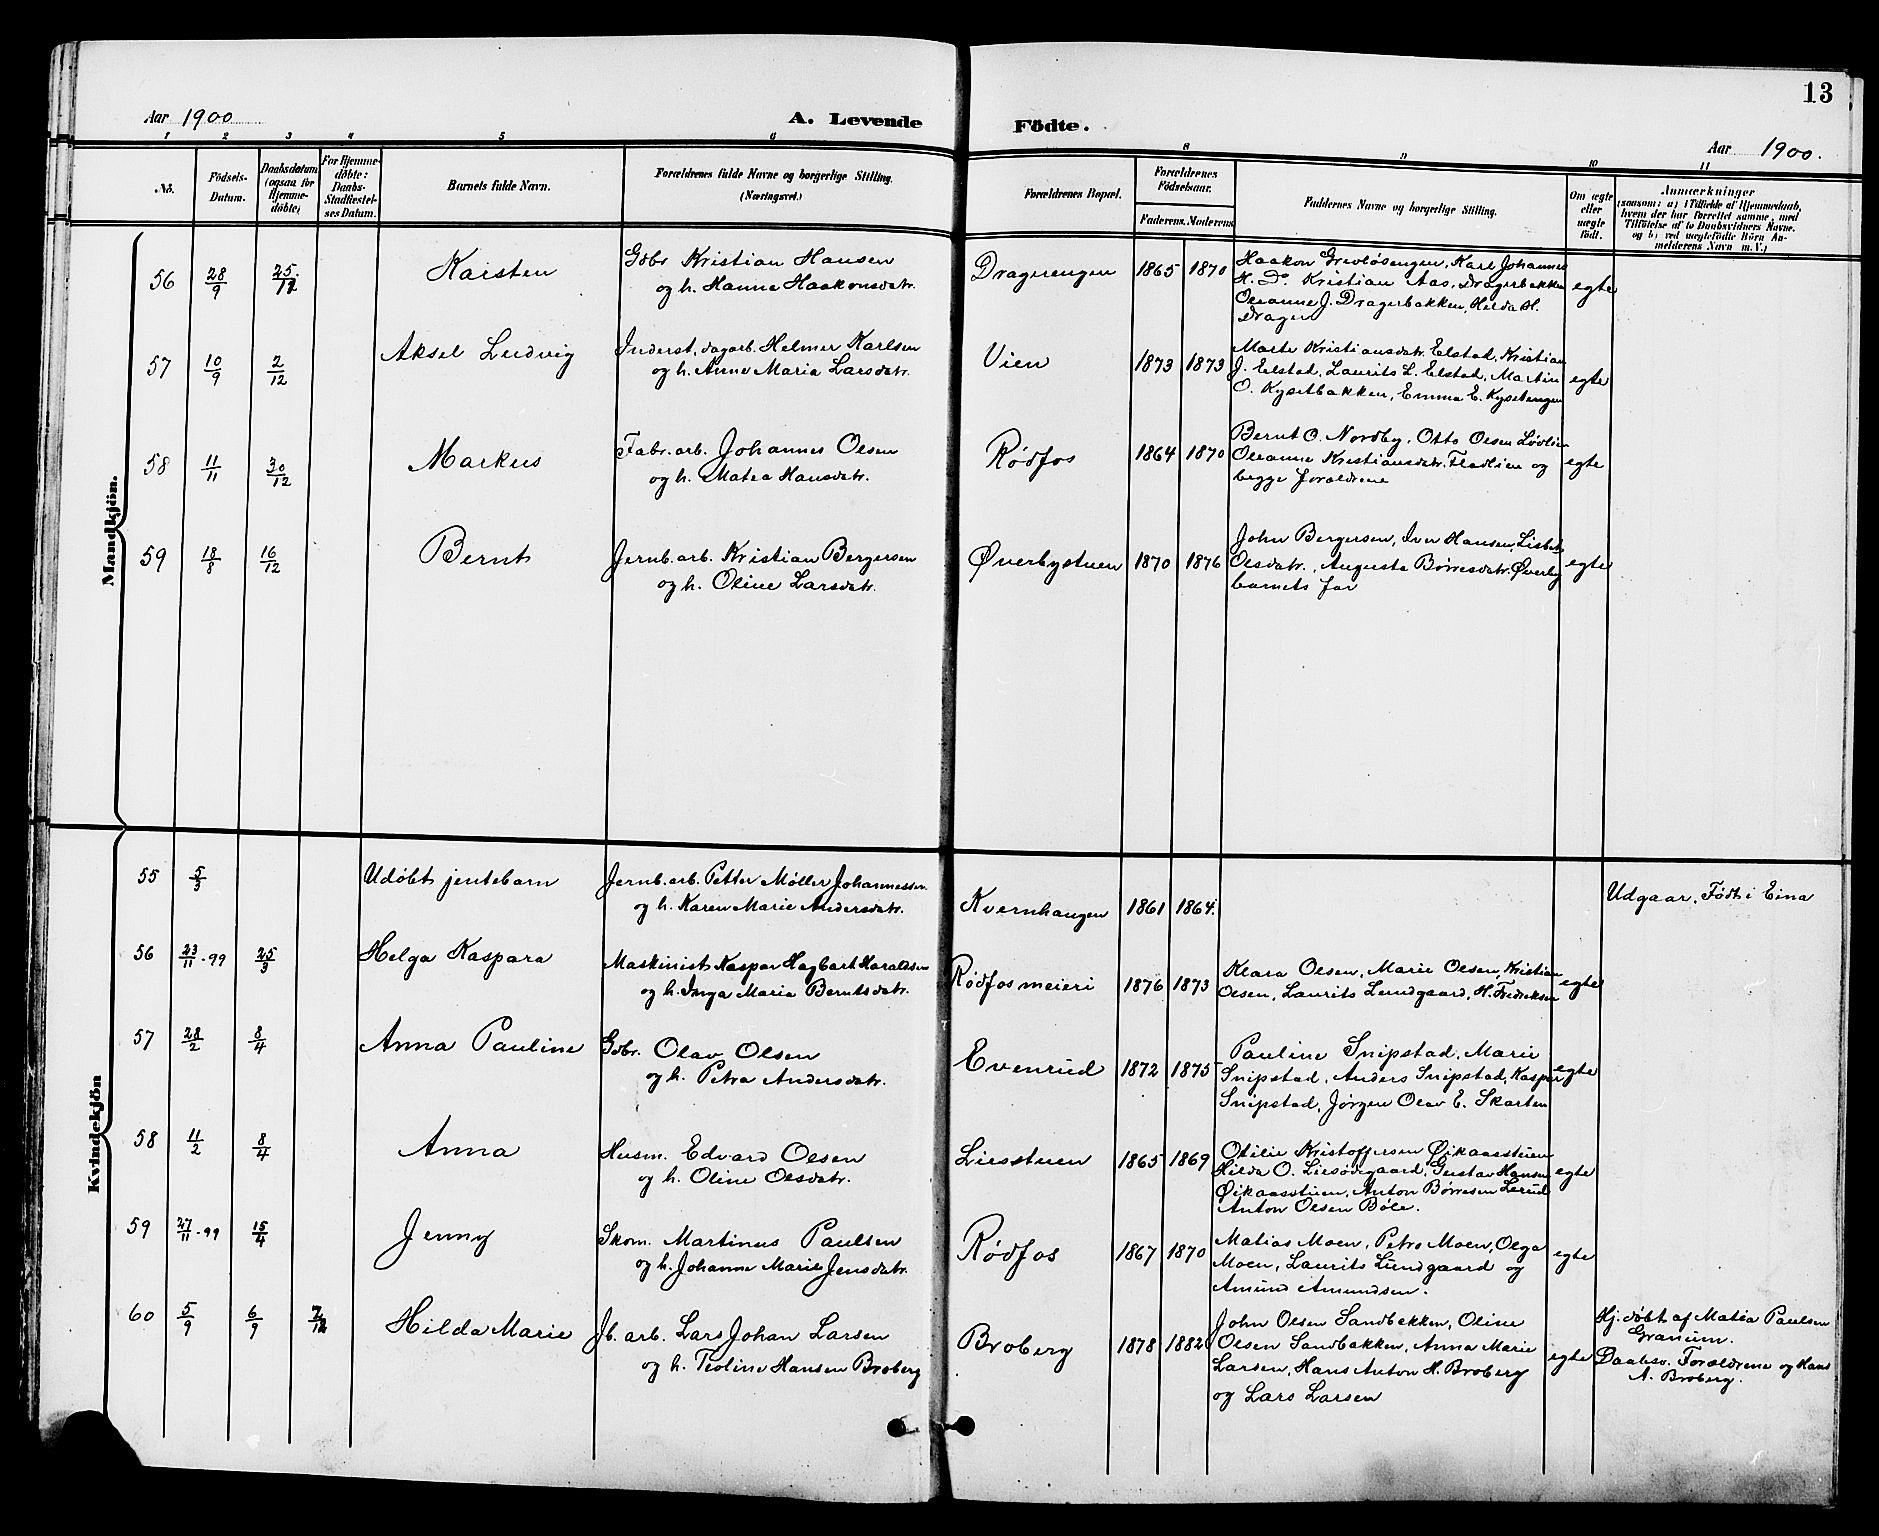 13
Aar 1900
A. Levende
Födte.
Aar 1900.
1 2 3 4 5 6 8 9 10 11
No.
Födsels-
Datum.
Daabsdatum
(ogsaa for
Hjemme-
döbte)
For Hjemme-
döbte:
Daabs-
Stadfæstel-
ses Datum.
Barnets fulde Navn.
Forældrenes fulde Navne og borgerlige Stilling.
(Næringsvei.)
Forældrenes Bopæl.
Forældrenes
Födselsaar.
Faderens. Moderens.
Faddernes Navne og borgerlige Stilling.
Om ægte
eller
uægte
født.
Anmærkninger
(saasom: a) i Tilfælde af Hjemmedaab,
hvem der har forrettet samme, med
Tilföielse af to Daabsvidners Navne.
og b) ved uægtefödte Börn An-
melderens Navn m. V.)
Mandkjön.
56 28/9 25/12 Karsten
Gbr Kristian Hansen
og h. Hanna Haakonsdatr.
Dragerengen 1865 1870
Haakon Grevløsengen, Karl Johannes
H. Do. Kristian Aas, Dragerbakken
Oleanne J. Dragerbakken, Hilda H.
Drager
egte
57 10/9 2/12 Aksel Ludvig
Inderst, dagarb. Helmer Karlsen
og h. Anne Maria Larsdatr.
Vien 1873 1873
Marte Kristiansdatr. Elstad, Kristian
J. Elstad, Laurits L. Elstad, Martin
O. Kysetbakken, Emma E. Kysetengen
egte
58 11/11 30/12 Markus
Fabr. arb. Johannes Olsen
og h. Matea Hansdatr.
Rødfos 1864 1870
Bernt O. Nordby, Otto Olsen Løvlien
Oleanne Kristiansdatr. Fladlien og
begge forældrene
egte
59 18/8 16/12 Bernt
Jernb. arb. Kristian Bergersen
og h. Oline Larsdatr.
Øverbystuen 1870 1876
John Bergersen, Iver Hansen, Lisbet
Olsdatr., Augusta Børresdatr. Øverby
barnets far
egte
Kvindekjön
55 5/3 Udøbt jentebarn
Jernb. arb. Petter Møller Johannessen
og h. Karen Marie Andersdatr.
Kvernhaugen 1861 1864.
Udgaar. Født i Eina
56 23/11-99 25/3 Helga Kaspara
Maskinist Kaspar Hagbart Haraldsen
og h. Inga Maria Berntsdatr.
Rødfos meieri 1876 1873
Klara Olsen, Marie Olsen, Kristian
Olsen, Laurits Lundgaard, H. Fredriksen
egte
57 28/2 8/4 Anna Pauline
Gbr. Olav Olsen
og h. Petra Andersdatr.
Evenrud 1872 1875
Pauline Snipstad, Marie
Snipstad, Anders Snipstad, Kaspar
Snipstad, Jørgen Olav E. Skarten
egte
58 11/2 8/4 Anna
Husm. Edvard Olsen
og h. Oline Olsdatr.
Liesstuen 1865 1869
Otilie Kristoffersen Øikaasstuen
Hilda O. Liesødegaard, Gustav Hansen
Øikaasstuen, Anton Børresen Lerud
Anton Olsen Bøle.
egte
59 27/11-99 15/4 Jenny
Skom. Martinus Paulsen
og h. Johanne Marie Jensdatr.
Rødfos 1867 1870
Matias Moen, Petra Moen, Olga
Moen, Laurits Lundgaard og
Amund Amundsen.
egte
60 5/9 6/9 2/12 Hilda Marie
Jb. arb. Lars Johan Larsen
og h. Teoline Hansen Broberg
Broberg 1878 1882
John Olsen Sandbakken, Oline
Olsen Sandbakken, Anna Marie
Larsen, Hans Anton H. Broberg
og Lars Larsen
egte
Hj. døbt af Matea Paulsen
Granum.
Daabsv. Forældrene og Hans
A. Broberg.